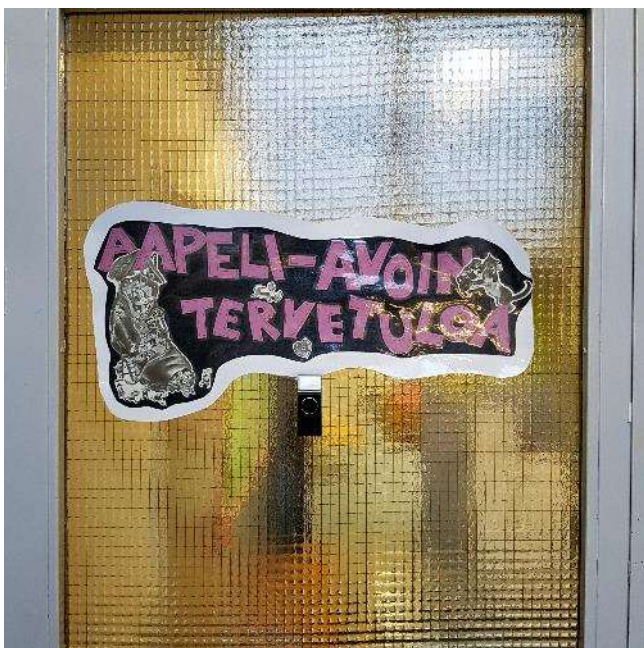 AAPELI-AVOIN
TERVETULOA